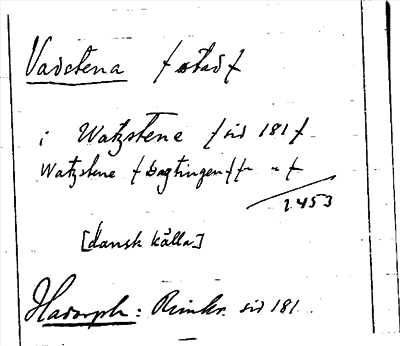 Vadstena /stad/
i Watzstene /sid 181/
Watzstene /Dagtingen/ /- " -/
1453
[dansk källa]
Hadorph: Rimkr. sid 181